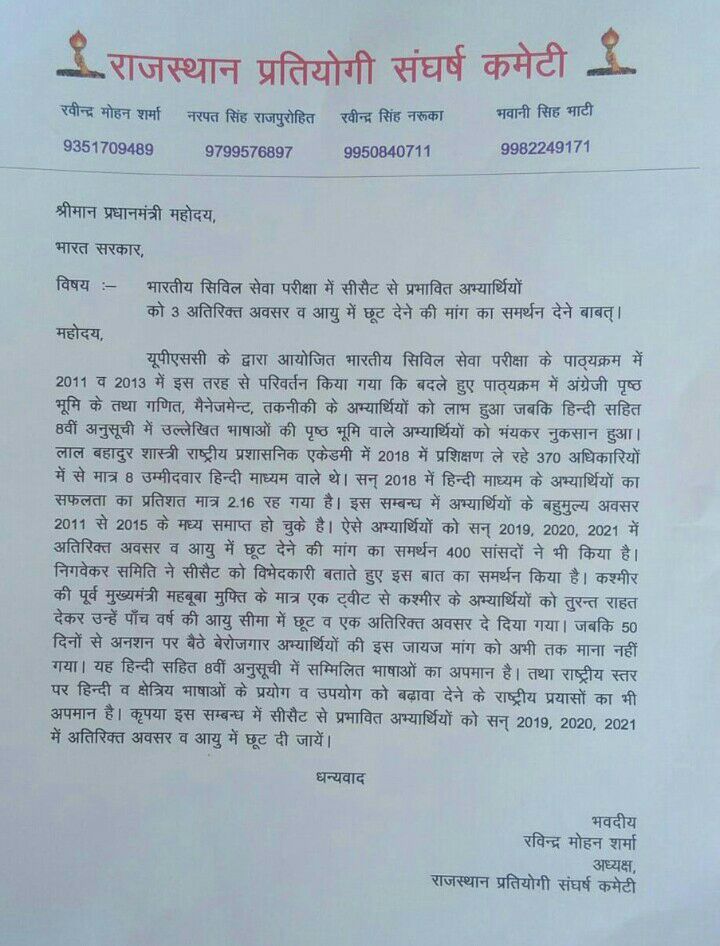 राजस्थान प्रतियोगी संघर्ष कमेटी
रवीन्द्र मोहन शर्मा नरपत सिंह राजपुरोहित रवीन्द्र सिंह नरूका भवानी सिह भाटी
9351709489 9799576897 9950840711 9982249171
श्रीमान प्रधानमंत्री महोदय,
भारत सरकार,
विषय :– भारतीय सिविल सेवा परीक्षा में सीसैट से प्रभावित अभ्यार्थियों
को 3 अतिरिक्त अवसर व आयु में छूट देने की मांग का समर्थन देने बाबत्।
महोदय,
यूपीएससी के द्वारा आयोजित भारतीय सिविल सेवा परीक्षा के पाठ्यक्रम में
2011 व 2013 में इस तरह से परिवर्तन किया गया कि बदले हुए पाठ्यक्रम में अंग्रेजी पृष्ठ
भूमि के तथा गणित, मैनेजमेन्ट, तकनीकी के अभ्यार्थियों को लाभ हुआ जबकि हिन्दी सहित
8वीं अनुसूची में उल्लेखित भाषाओं की पृष्ठ भूमि वाले अभ्यार्थियों को भंयकर नुकसान हुआ।
लाल बहादुर शास्त्री राष्ट्रीय प्रशासनिक एकेडमी में 2018 में प्रशिक्षण ले रहे 370 अधिकारियों
में से मात्र 8 उम्मीदवार हिन्दी माध्यम वाले थे। सन् 2018 में हिन्दी माध्यम के अभ्यार्थियों का
सफलता का प्रतिशत मात्र 2.16 रह गया है। इस सम्बन्ध में अभ्यार्थियों के बहुमुल्य अवसर
2011 से 2015 के मध्य समाप्त हो चुके है। ऐसे अभ्यार्थियों को सन् 2019, 2020, 2021 में
अतिरिक्त अवसर व आयु में छूट देने की मांग का समर्थन 400 सांसदों ने भी किया है।
निगवेकर समिति ने सीसैट को विभेदकारी बताते हुए इस बात का समर्थन किया है। कश्मीर
की पूर्व मुख्यमंत्री महबूबा मुफ्ति के मात्र एक ट्वीट से कश्मीर के अभ्यार्थियों को तुरन्त राहत
देकर उन्हें पाँच वर्ष की आयु सीमा में छूट व एक अतिरिक्त अवसर दे दिया गया। जबकि 50
दिनों से अनशन पर बैठे बेरोजगार अभ्यार्थियों की इस जायज मांग को अभी तक माना नहीं
गया। यह हिन्दी सहित 8वीं अनुसूची में सम्मिलित भाषाओं का अपमान है। तथा राष्ट्रीय स्तर
पर हिन्दी व क्षेत्रिय भाषाओं के प्रयोग व उपयोग को बढ़ावा देने के राष्ट्रीय प्रयासों का भी
अपमान है। कृपया इस सम्बन्ध में सीसैट से प्रभावित अभ्यार्थियों को सन् 2019, 2020, 2021
में अतिरिक्त अवसर व आयु में छूट दी जायें।
धन्यवाद
भवदीय
रविन्द्र मोहन शर्मा
अध्यक्ष,
राजस्थान प्रतियोगी संघर्ष कमेटी